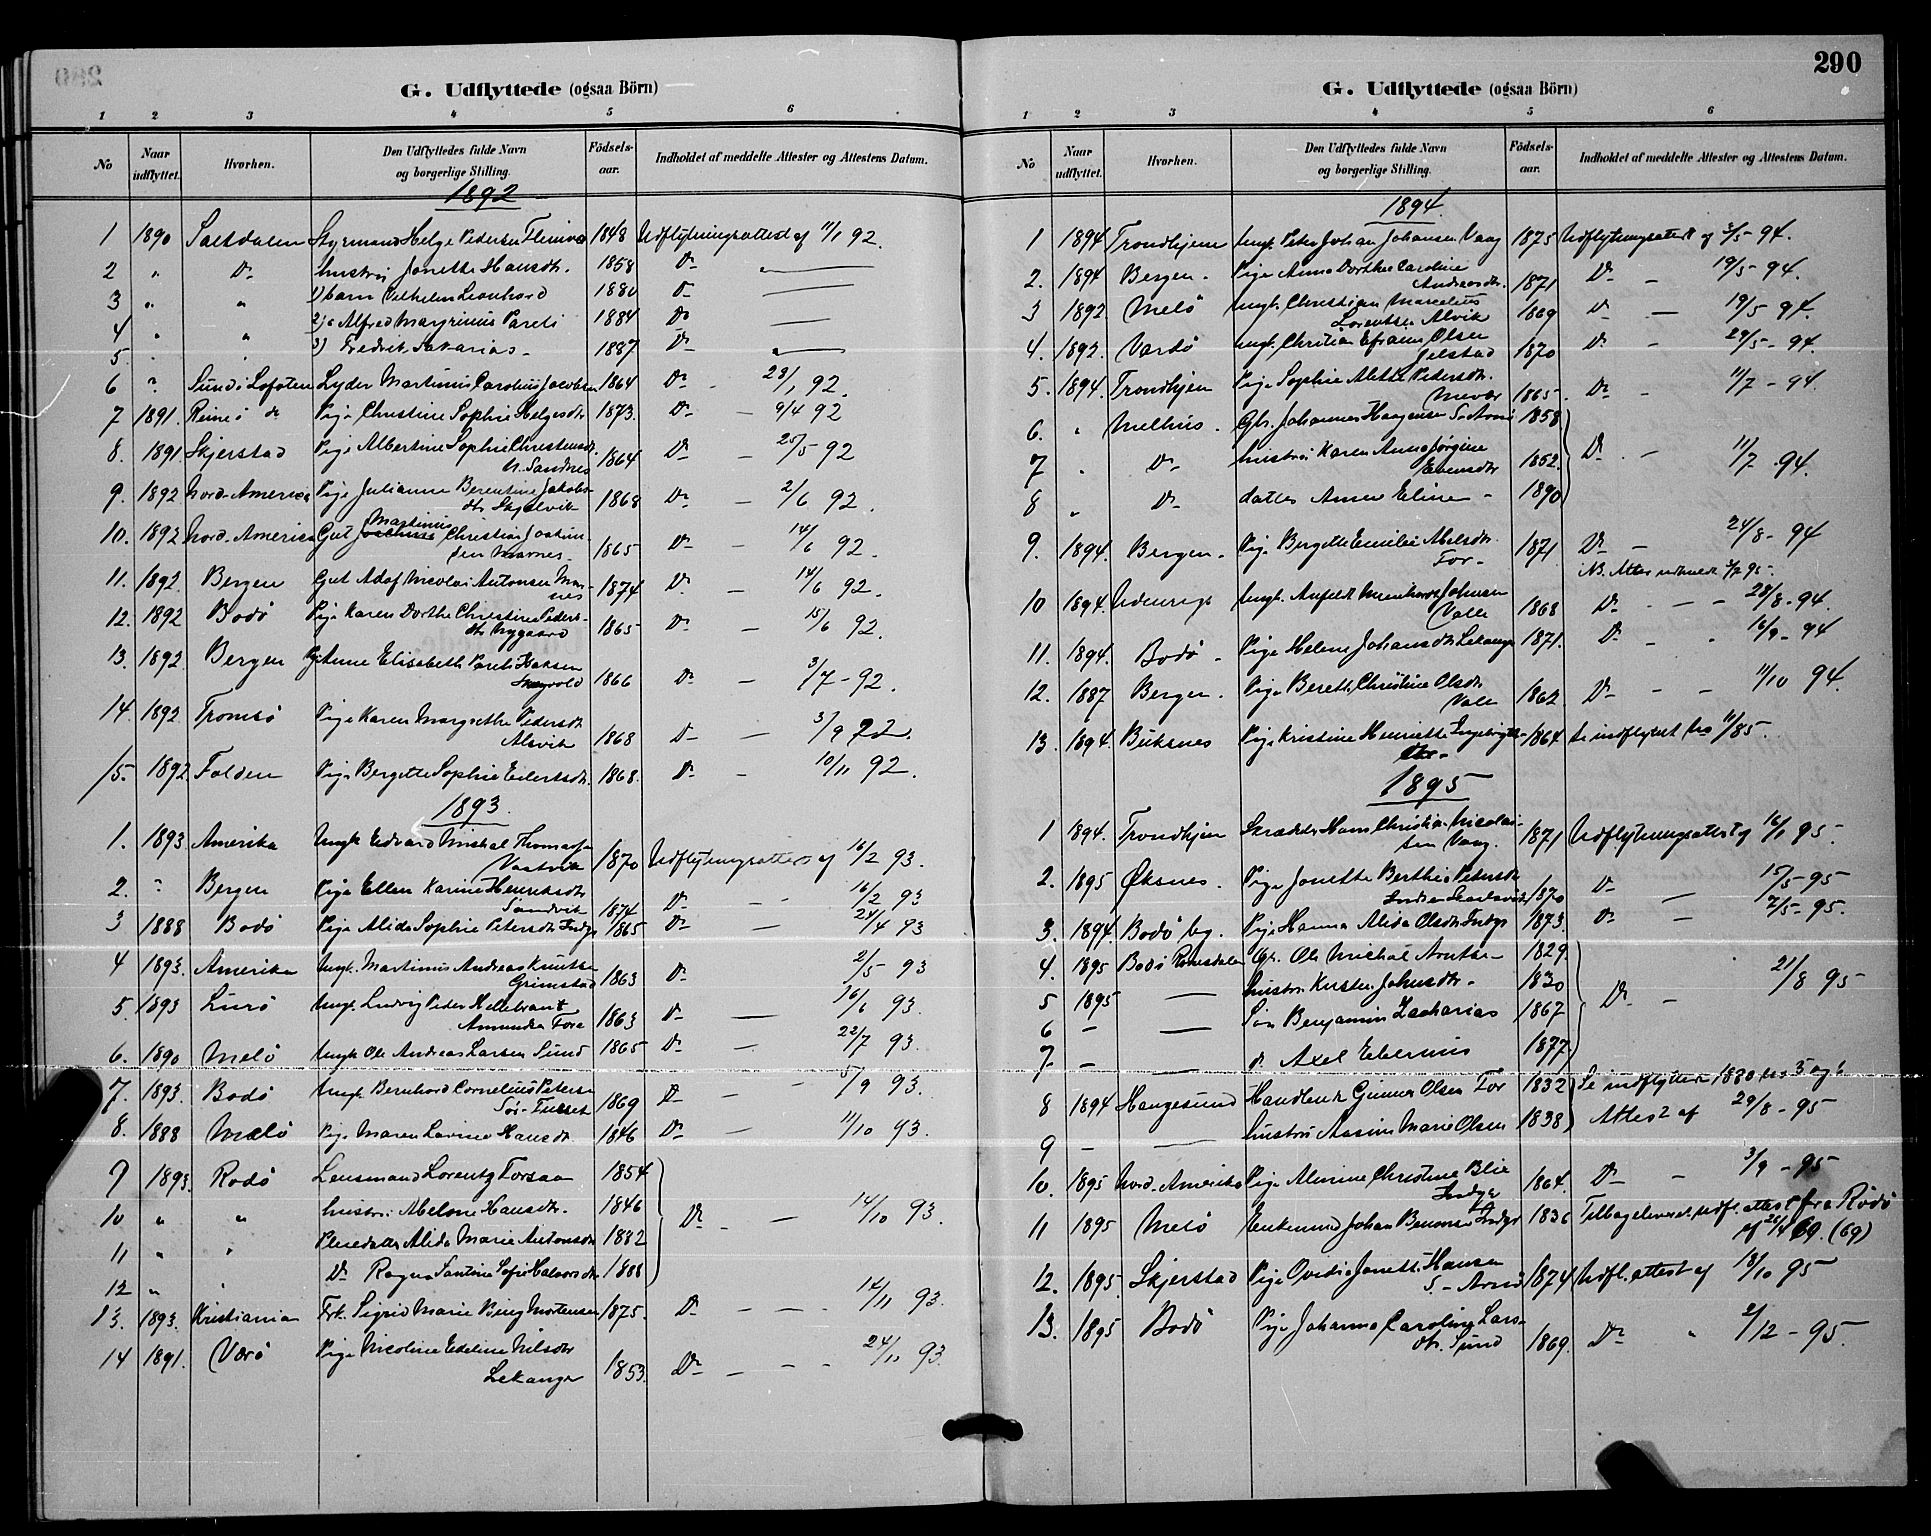 290
G. Udflyttede (ogsaa Börn)
1 2 3 4 5 6
No Naar udflyttet. Hvorhen. Den Udflyttedes fulde Navn og borgerlige Stilling. Födsels-aar. Indholdet af meddelte Attester og Attestens Datum.
1892
1 1890 Saltdalen Styrmand Helge Pedersen 1848 Udflytningsattest af 11/1 92.
2 " Do hustru Jonette Hansdtr. 1858 Do
3 " " 1) barn Vilhelm Leonhard 1880 Do
4 " " 2) " Alfred Pareli 1884 Do
5. 3) Fredrik Sakarias 1887 Do
6 " Sundö Lofoten Lyder Martinus Carolius Jacobsen 1864 Do 23/1 92.
7 1891. Reinö do Pige Christine Sophie Helgesdtr 1873. Do 9/4 92
8. 1891. Skjerstad Pige Albertine Sophie Christensdtr.
N. Sandnes 1864 Do 25/5-92
9. 1892 Nord-Amerika Pige Julianne Berentine Jakobs-
dtr Skjelvik 1868 Do 2/6 92.
10. 1892 Nord-America Gut Martinus Christian Joakim-
sen Marnes 1865 Do 14/6 92.
11. 1892. Bergen Gut Adof Nicolai Antonsen Mar-
nes 1874 Do 14/6 92.
12. 1892 Bodö Pige Karen Dorthe Christine Peders-
dtr Nygaard 1865 Do 15/6 92.
13. 1892. Bergen Pige Anne Elisabeth Pareli Hansen
1866 Do 3/7-92.
14. 1892. Tromsö Pige Karen Margrethe Pedersdtr
Alsvik 1868 Do 3/9 92.
15. 1892 Folden Pige Bergette Sophie Eilertsdtr. 1868. Do 10/11 92.
1893.
1. 1893. Amerika Ungk Edvard Mikal Thomas
Vaatvik 1870 Udflytningsattest af 16/2 93.
2. " Bergen Pige Ellen Karine Henriksdtr
Sandvik 1874 Do 16/2 93
3 1888 Bodö Pige Alida Sophie Petersdtr Indyr 1865 Do 24/4 93
4 1893. Amerika Ungk. Martinus Andreas Knutsen
Grimstad 1863 Do 2/5 93
5. 1893 Lurö Ungk. Ludvig Peder Hillebrant
Amundsen Fore 1863 Do 16/6 93.
6. 1890 Melö Ungk Ole Andreas Larsen Sund 1865 Do 22/7 93.
7. 1893. Bodö Ungk Bernhard Cornelius Peters
Sör- 1869 Do 5/9 93.
8. 1888 Melö Pige Maren Lavine Hansdtr. 1846 Do 11/10 93.
9 1893. Rodö Lensmand Lorentz Torsaa 1854
10 " " hustru Hansdtr. 1846 Do 14/10 93.
11 " " Pleiedatter Alida Marie Antonsdtr 1882
12 " Do Ragna Santine Sofie Halvorsdtr 1888
13. 1893. Kristiania Frk. Sigrid Marie Bing Mortensen 1875. Do 14/11 93.
14 1891. Værö Pige Nicoline Edeline Nilsdtr
Lekanger 1853. Do 24/11 93.
290
G. Udflyttede (ogsaa Börn)
1 2 3 4 5 6
No Naar udflyttet. Hvorhen. Den Udflyttedes fulde Navn og borgerlige Stilling. Födsels-aar. Indholdet af meddelte Attester og Attestens Datum.
1894.
1 1894 Trondhjem Ungk Peter Johan Johansen Vaag 1875 Udflytningsattest af 3/5-94.
2. 1894 Bergen. Pige Anna Dorthea Caroline
Andreasdtr. 1871 Do 19/5-94.
3 1892 Melö Ungk. Christian Marcelius
Lorentsen Alsvik 1869 Do 19/5-94.
4. 1892. Vardö Ungk. Christian Efraim Olsen
Gilstad 1870 Do 29/5-94.
5. 1894. Trondhjem Pige Sophie Alette Pedersdtr.
1865. Do 11/7-94.
6. " Melhus. Gbr. Johannes Haagensen S. Arnö 1858
7 " Do hustru Karen Anna Jörgine
Evensdtr 1852. Do 11/7 94.
8 " Do datter Anna Eline 1890
9. 1894. Bergen. Pige Bergitte Emilie Nilsdtr
For 1871 Do 24/8-94
10 1894. Udenrigs Ungk. Anfeldt Meinhardt Johnsen
Valle 1868 Do 28/8-94.
11. 1894. Bodö Pige Helene Johansdtr Lekanger 1871. Do 16/9-94
12. 1887 Bergen. Pige Berette Christine Olsdtr
Valle 1862 Do 11/10 94.
13. 1894. Buksnes Pige Kristine Henriette Ingebrigts-
dtr. 1864 Se indflyttet No 11/85.
1895
1 1894. Trondhjem Skrædder Hans Christian Nicolai-
sen Vaag. 1871 Udflytningsattest af 16/1 95.
2. 1895 Öksnes. Pige Jonette Berthea Petersdtr
1870 Do 15/5-95
3. 1894. Bodö by. Pige Hanna Alida Olsdtr Indyr 1873. Do 7/5-95.
4. 1895 Bodö Gbr. Ole Michal Arntsen 1829
5 1895 hustru Kirsten Johnsdtr 1830 Do 21/8 95
6 Sön Benjamin Zacharias 1867
7 do Axel 1877.
8 1894 Haugesund Handlende Gunner Olsen For 1832 Se indflyttet 1880 No 5 og 6
9 hustru Marie Olsen 1838 Attest af 29/8-95
10. 1895 Nord-Amerika Pige Almine Christine Blix
Indyr 1864. Do 3/9-95
11 1895 Melö Enkemand Johan Benonsen Indyr 1836 Tilbageleveret udfl. attest fra Rödö
(69)
12. 1895. Skjerstad Pige Ovidia Jonette Hansen
S. Arnö 1874 Udfl. attest af 18/10 95
13. 1895 Bodö Pige Johanna Caroline Lars-
dtr. Sund 1869. Do 2/12-95.